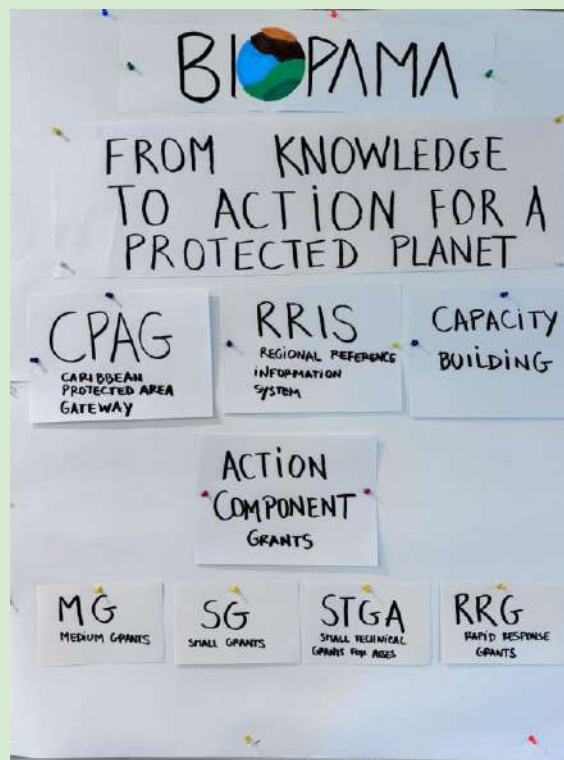 BIOPAMA
FROM KNOWLEDGE
TO ACTION FOR A
PROTECTED PLANET
CPAG
CARIBBEAN
PROTECTED AREA
GATEWAY
RRIS
REGIONAL REFERENCE
INFORMATION
SYSTEM
CAPACITY
BUILDING
ACTION
COMPONENT
GRANTS
MG
MEDIUM GRANTS
SG
SMALL GRANTS
STGA
SMALL TECHNICAL
GRANTS FOR ASSES
RRG
RAPID RESPONSE
GRANTS